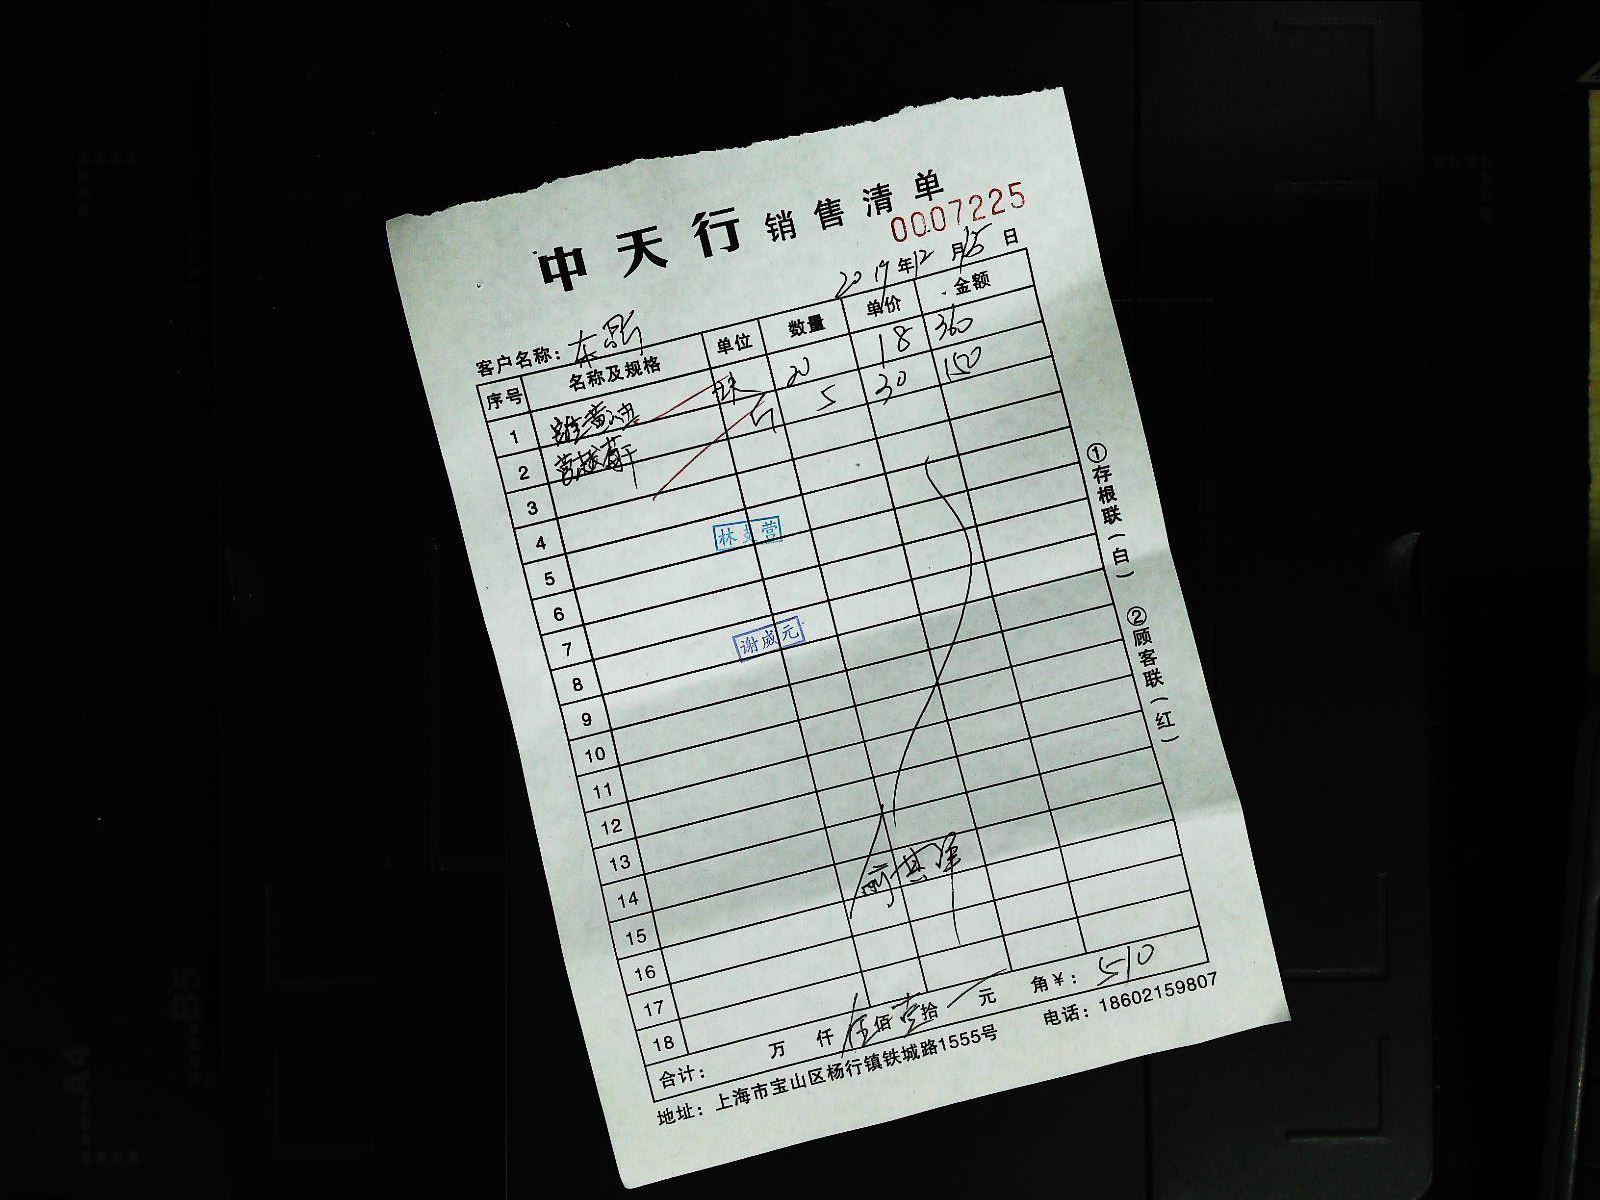 中天行销售清单
0007225
2019年12月15日
客户名称：
序号 名称及规格 单位 数量 单价 金额
1 20 18 360
2 5 30 150
3
4
5
6
7
8
9
10
11
12
13
14
15
16
17
18
林 营
谢成元
合计： 万 仟 伍佰壹拾 元 角¥：510
地址：上海市宝山区杨行镇铁城路1555号 电话：18602159807
①存根联（白） ②顾客联（红）